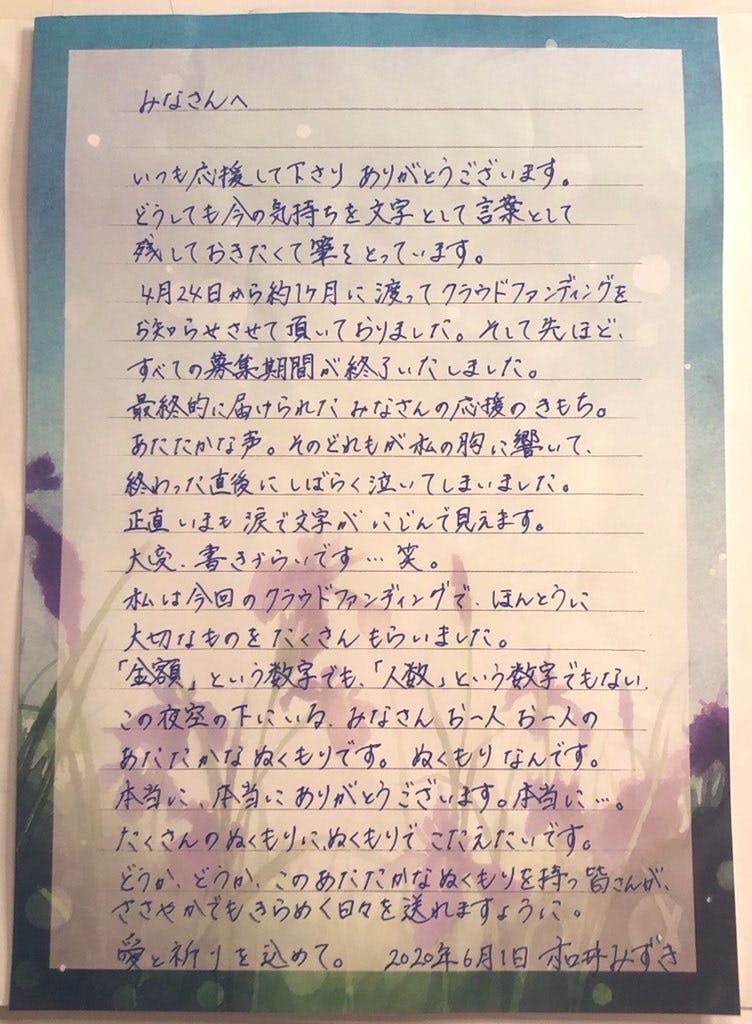 みなさんへ
いつも応援して下さり ありがとうございます。
どうしても今の気持ちを文字として言葉として
残しておきたくて筆をとっています。
4月24日から約1ケ月に渡ってクラウドファンディングを
お知らせさせて頂いておりました。そして先ほど、
すべての募集期間が終了いたしました。
最終的に届けられたみなさんの応援のきもち。
あたたかな声。そのどれもが私の胸に響いて、
終わった直後にしばらく泣いてしまいました。
正直いまも涙で文字がにじんで見えます。
大変、書きづらいです…笑。
私は今回のクラウドファンディングで、ほんとうに
大切なものをたくさんもらいました。
「金額」という数字でも、「人数」という数字でもない、
この夜空の下にいる、みなさんお一人お一人の
あたたかなぬくもりです。ぬくもりなんです。
本当に、本当にありがとうございます。本当に…。
たくさんのぬくもりに、ぬくもりでこたえたいです。
どうか、どうか、このあたたかなぬくもりを持つ皆さんが、
ささやかでもきらめく日々を送れますように。
愛と祈りを込めて。 2020年6月1日 和井みずき